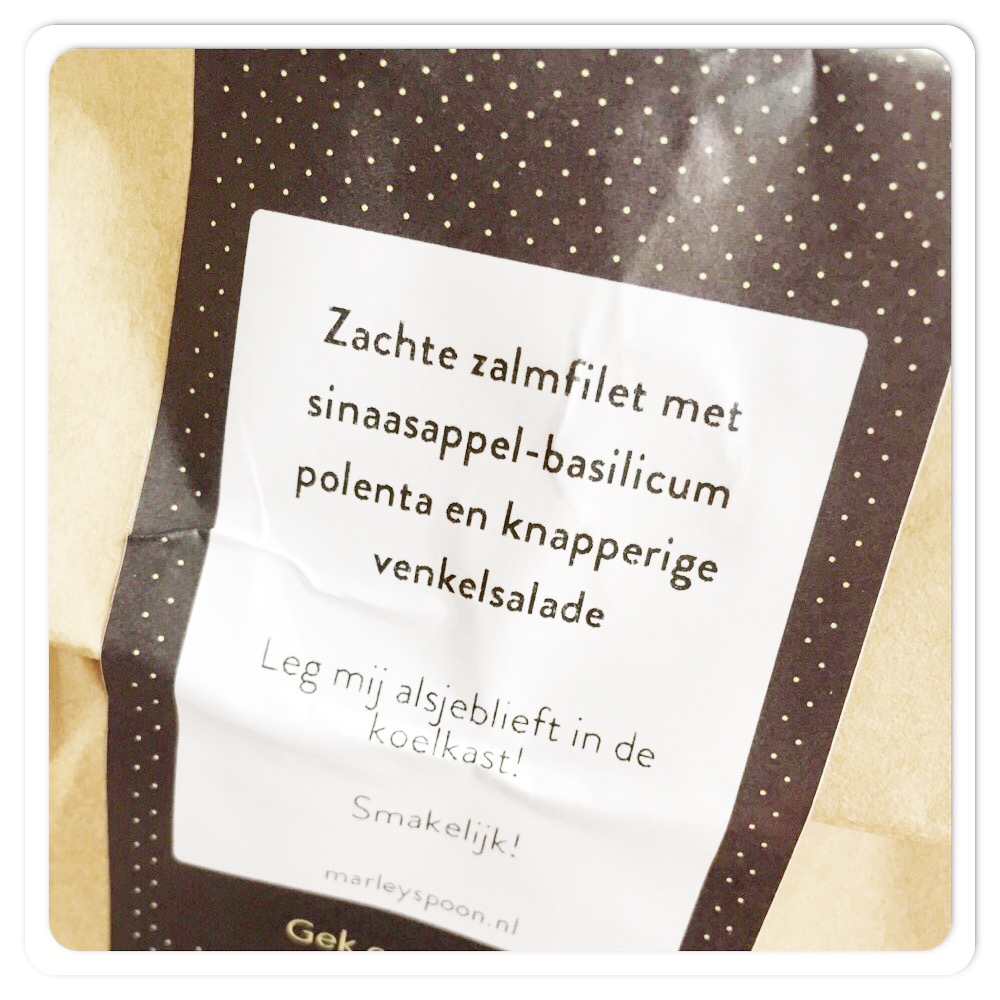 Zachte zalmfilet met
sinaasappel-basilicum
polenta en knapperige
venkelsalade
Leg mij alsjeblieft in de
koelkast!
Smakelijk!
marleyspoon.nl
Gek